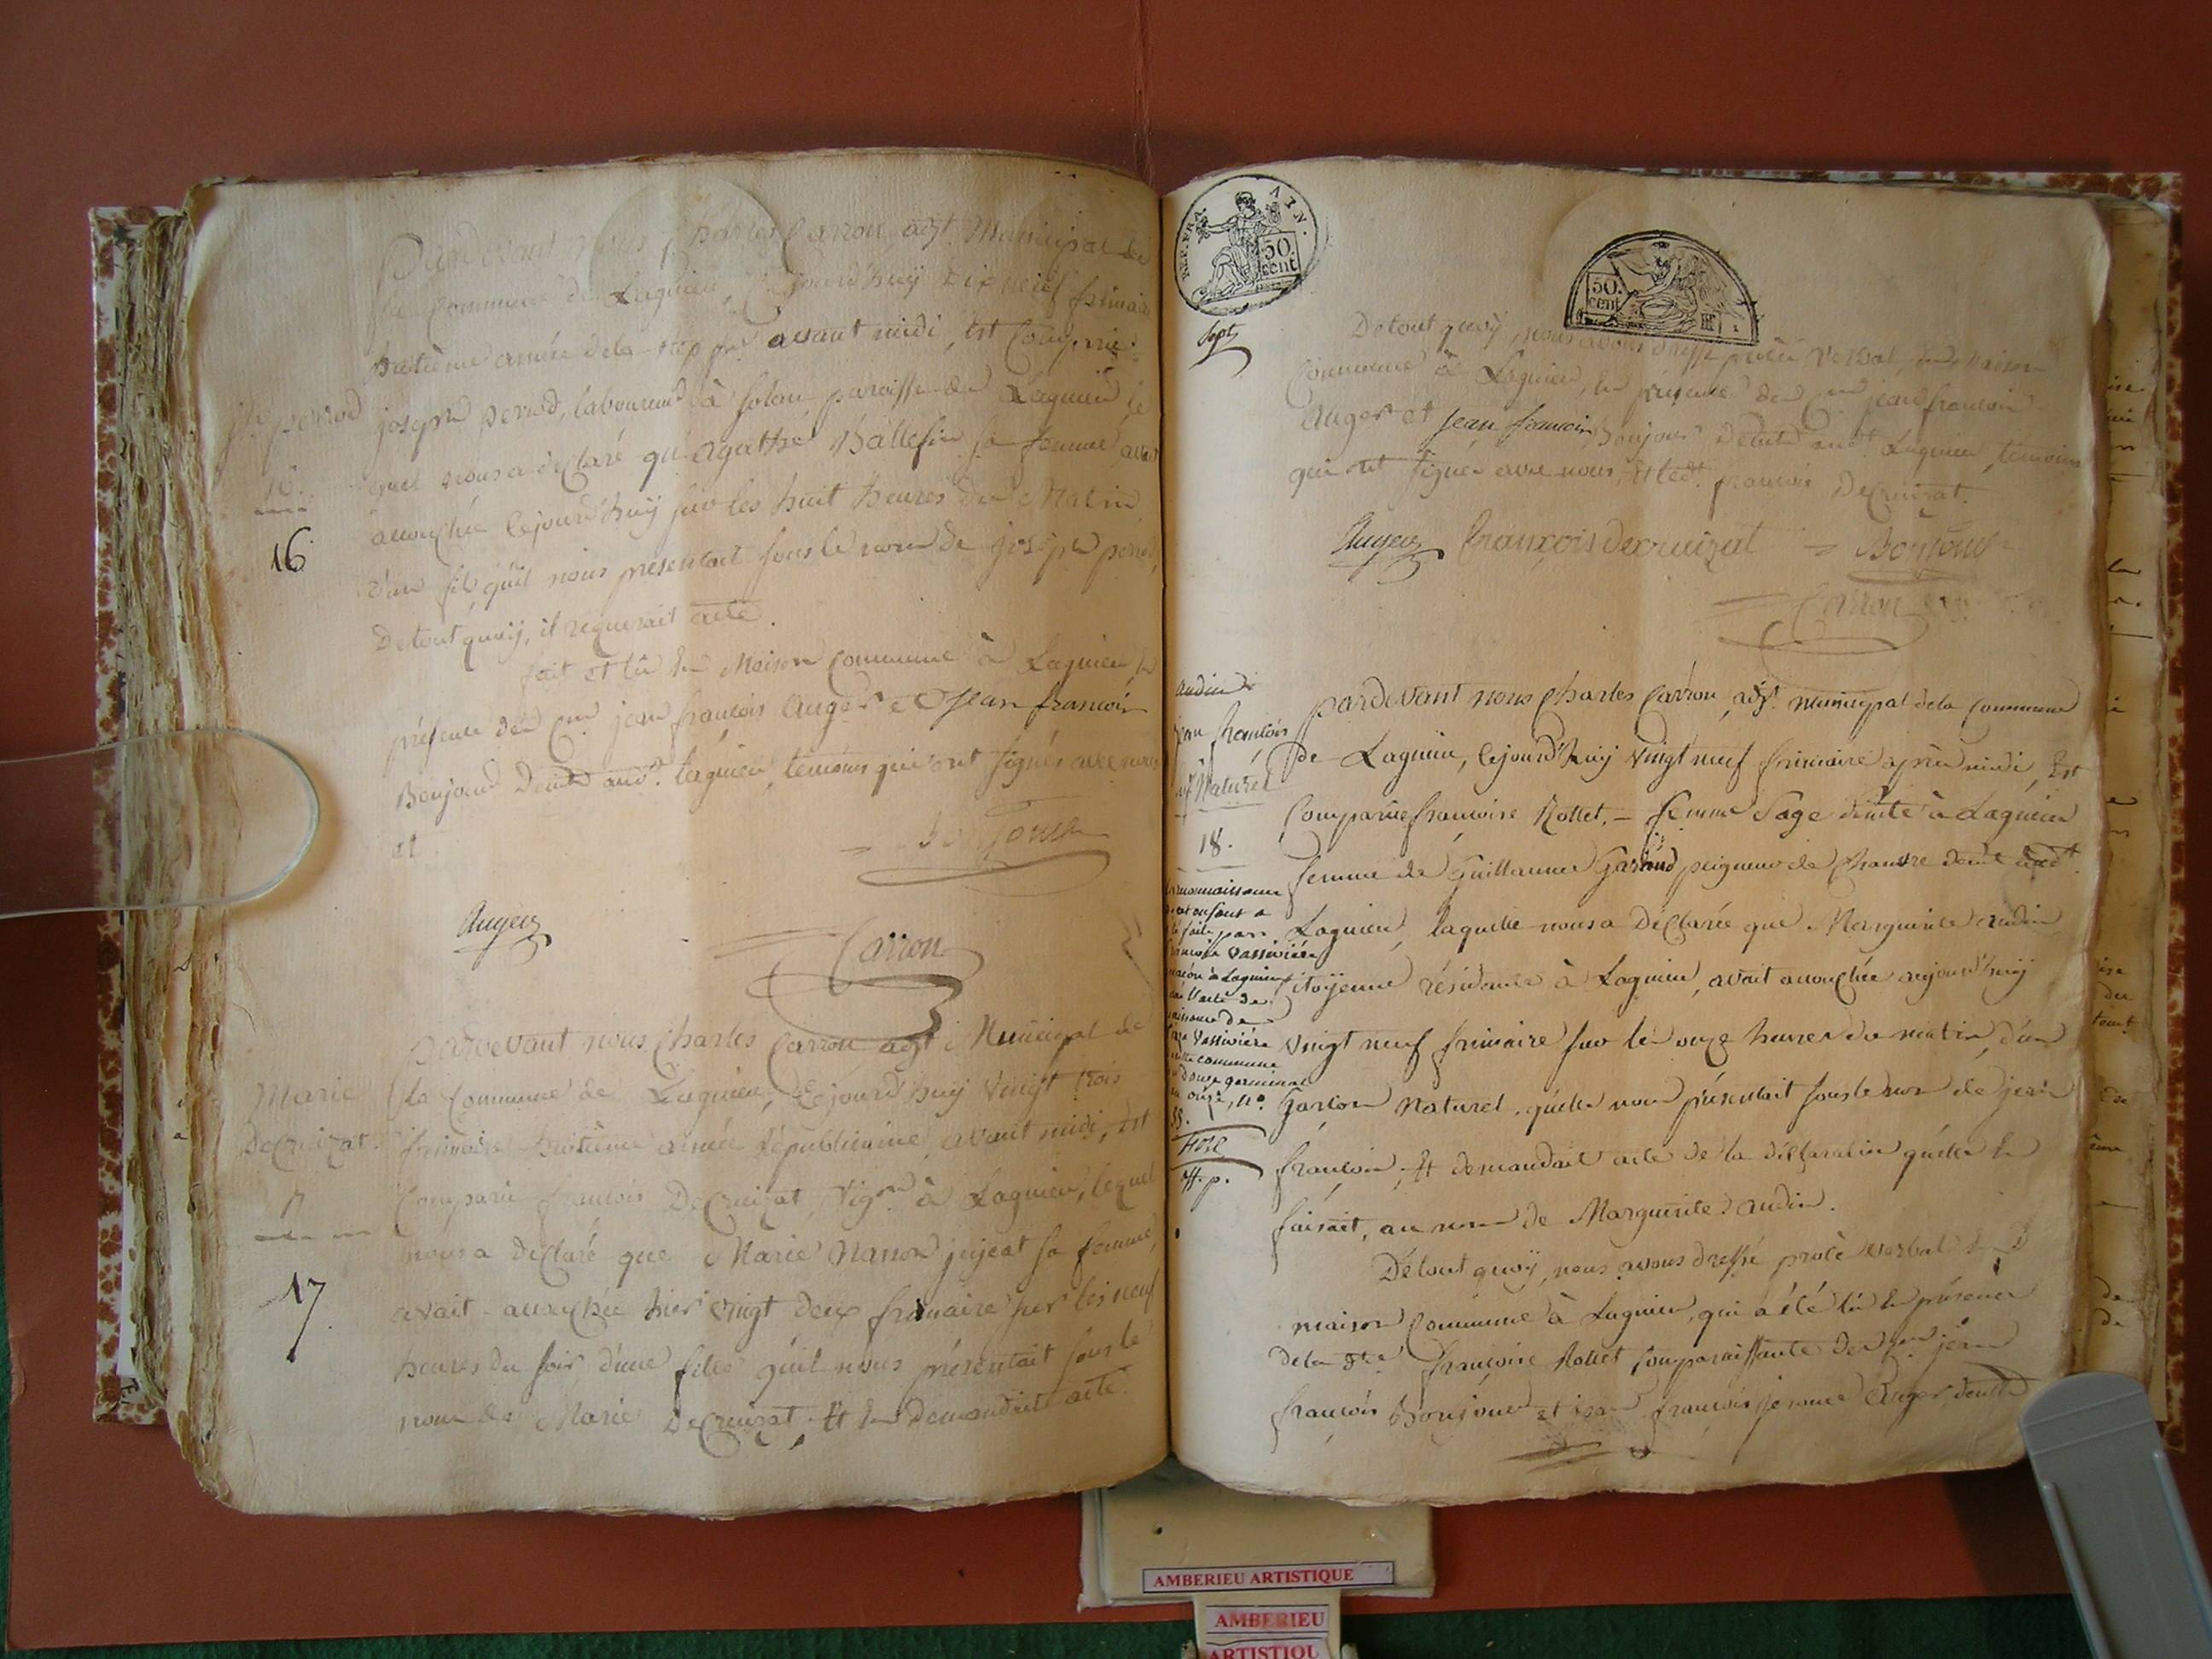 Pardevant nous Charles Carron, agt. Municipal de
la Commune de Lagnieu, Cejourd'huy Dix neuf frimaire
huitième année de la rep. avant midi, Est Comparu
joseph perrod, laboureur à paroisse de Lagnieu le
quel nous a déclaré qu'agathe Ballefin sa femme avait
accouchée Cejourd'huy sur les huit heures du Matin
d'un fils qu'il nous présentait sous le nom de joseph perrod,
De tout quoy, il requerait acte.
fait et lû En Maison Commune à Lagnieu, En
présence des Cns jean françois Auger et Jean francois
Bonjour Demts audt. Lagnieu, témoins qui ont signés avec nous
et.
Bonjour
Auger
Carron
jh perrod
16
Pardevant nous Charles Carron agt Municipal de
la Commune de Lagnieu, Cejourd'huy Vingt trois
frimaire huitième année républicaine, avant midi, Est
Comparu françois Decruizat, Vign. à Lagnieu, lequel
nous a déclaré que Marie Nanon jujeat sa femme,
avait accouchée hier vingt deux frimaire sur les neuf
heures du soir, d'une fille qu'il nous présentait sous le
nom de Marie Decruizat, Et En Demandait acte.
Marie
Decruizat.
17
17.
REP. FRA. AIN.
50. cent
50. cent
Sept
De tout quoy, nous avons dressé procès Verbal, en Maison
Commune à Lagnieu, En présence des Cns jean francois
Auger et Jean francois Bonjour Demts audt Lagnieu, témoins
qui ont signés avec nous, Et ledt. françois Decruizat.
Auger françois decruizat Bonjour
Carron
Audin
jean francois
Naturel
18.
Reconnaissance
enfant a
été faite par
Vassivière
maçon à Lagnieu
l'acte de
naissance de
Vassivière
commune
douze germinal
an onze, no.
55.
off. p.
pardevant nous Charles Carron, agt. municipal de la Commune
de Lagnieu, Cejourd'huy Vingt neuf frimaire après midi, Est
Comparüe francoise Rollet, femme Sage demte à Lagnieu
femme de Guillaume Garaud peigneur de Chanvre demt audt
Lagnieu, laquelle nous a Déclarée que Marguerite audin
Citoyenne résidente à Lagnieu, avait accouchée aujourd'huy
vingt neuf frimaire sur les onze heures du matin, d'un
Garcon Naturel, qu'elle nous présentait sous le nom de jean
francois, Et demandait acte de la déclaration qu'elle En
faisait, au nom de Marguerite audin.
De tout quoy, nous avons dressé procès verbal En
maison Commune à Lagnieu, qui a été lû En présence
de la dte. francoise Rollet Comparaissante des Cns jean
francois Bonjour et jean francois Auger, demts
AMBERIEU ARTISTIQUE
AMBERIEU
ARTISTIQU